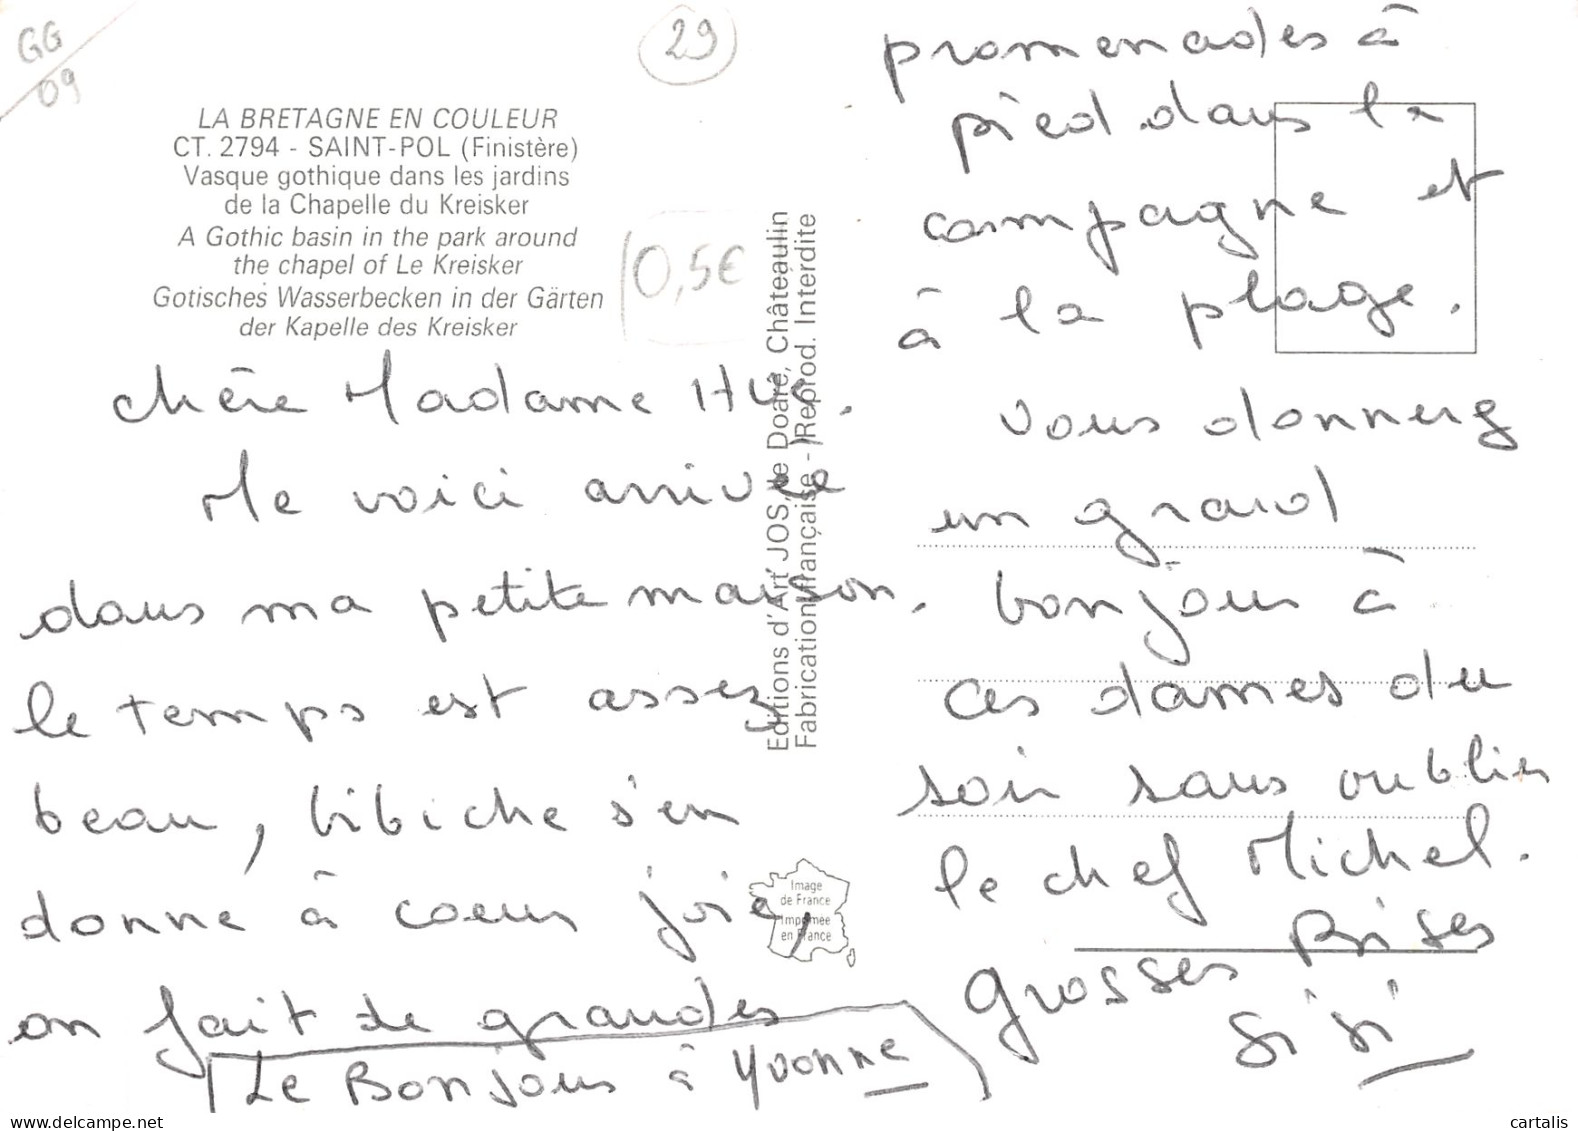 GG
09
29
LA BRETAGNE EN COULEUR
CT. 2794 - SAINT-POL (Finistère)
Vasque gothique dans les jardins
de la Chapelle du Kreisker
A Gothic basin in the park around
the chapel of Le Kreisker
Gotisches Wasserbecken in der Gärten
der Kapelle des Kreisker
0,5€
Editions d'Art JOS, le Doaré, Châteaulin
Fabrication française - Reprod. Interdite
Chère Madame
Me voici arrivée
dans ma petite maison.
le temps est assez
beau, bibiche s'en
donne à coeur joie,
on fait de grandes
promenades à
pied dans la
campagne et
à la plage.
Vous donnerez
un grand
bonjour à
ces dames du
soin sans oublier
le chef Michel.
Grosses Bises
Sisi
Le Bonjour à Yvonne
Image
de France
Imprimée
en France
delcampe.net
cartalis